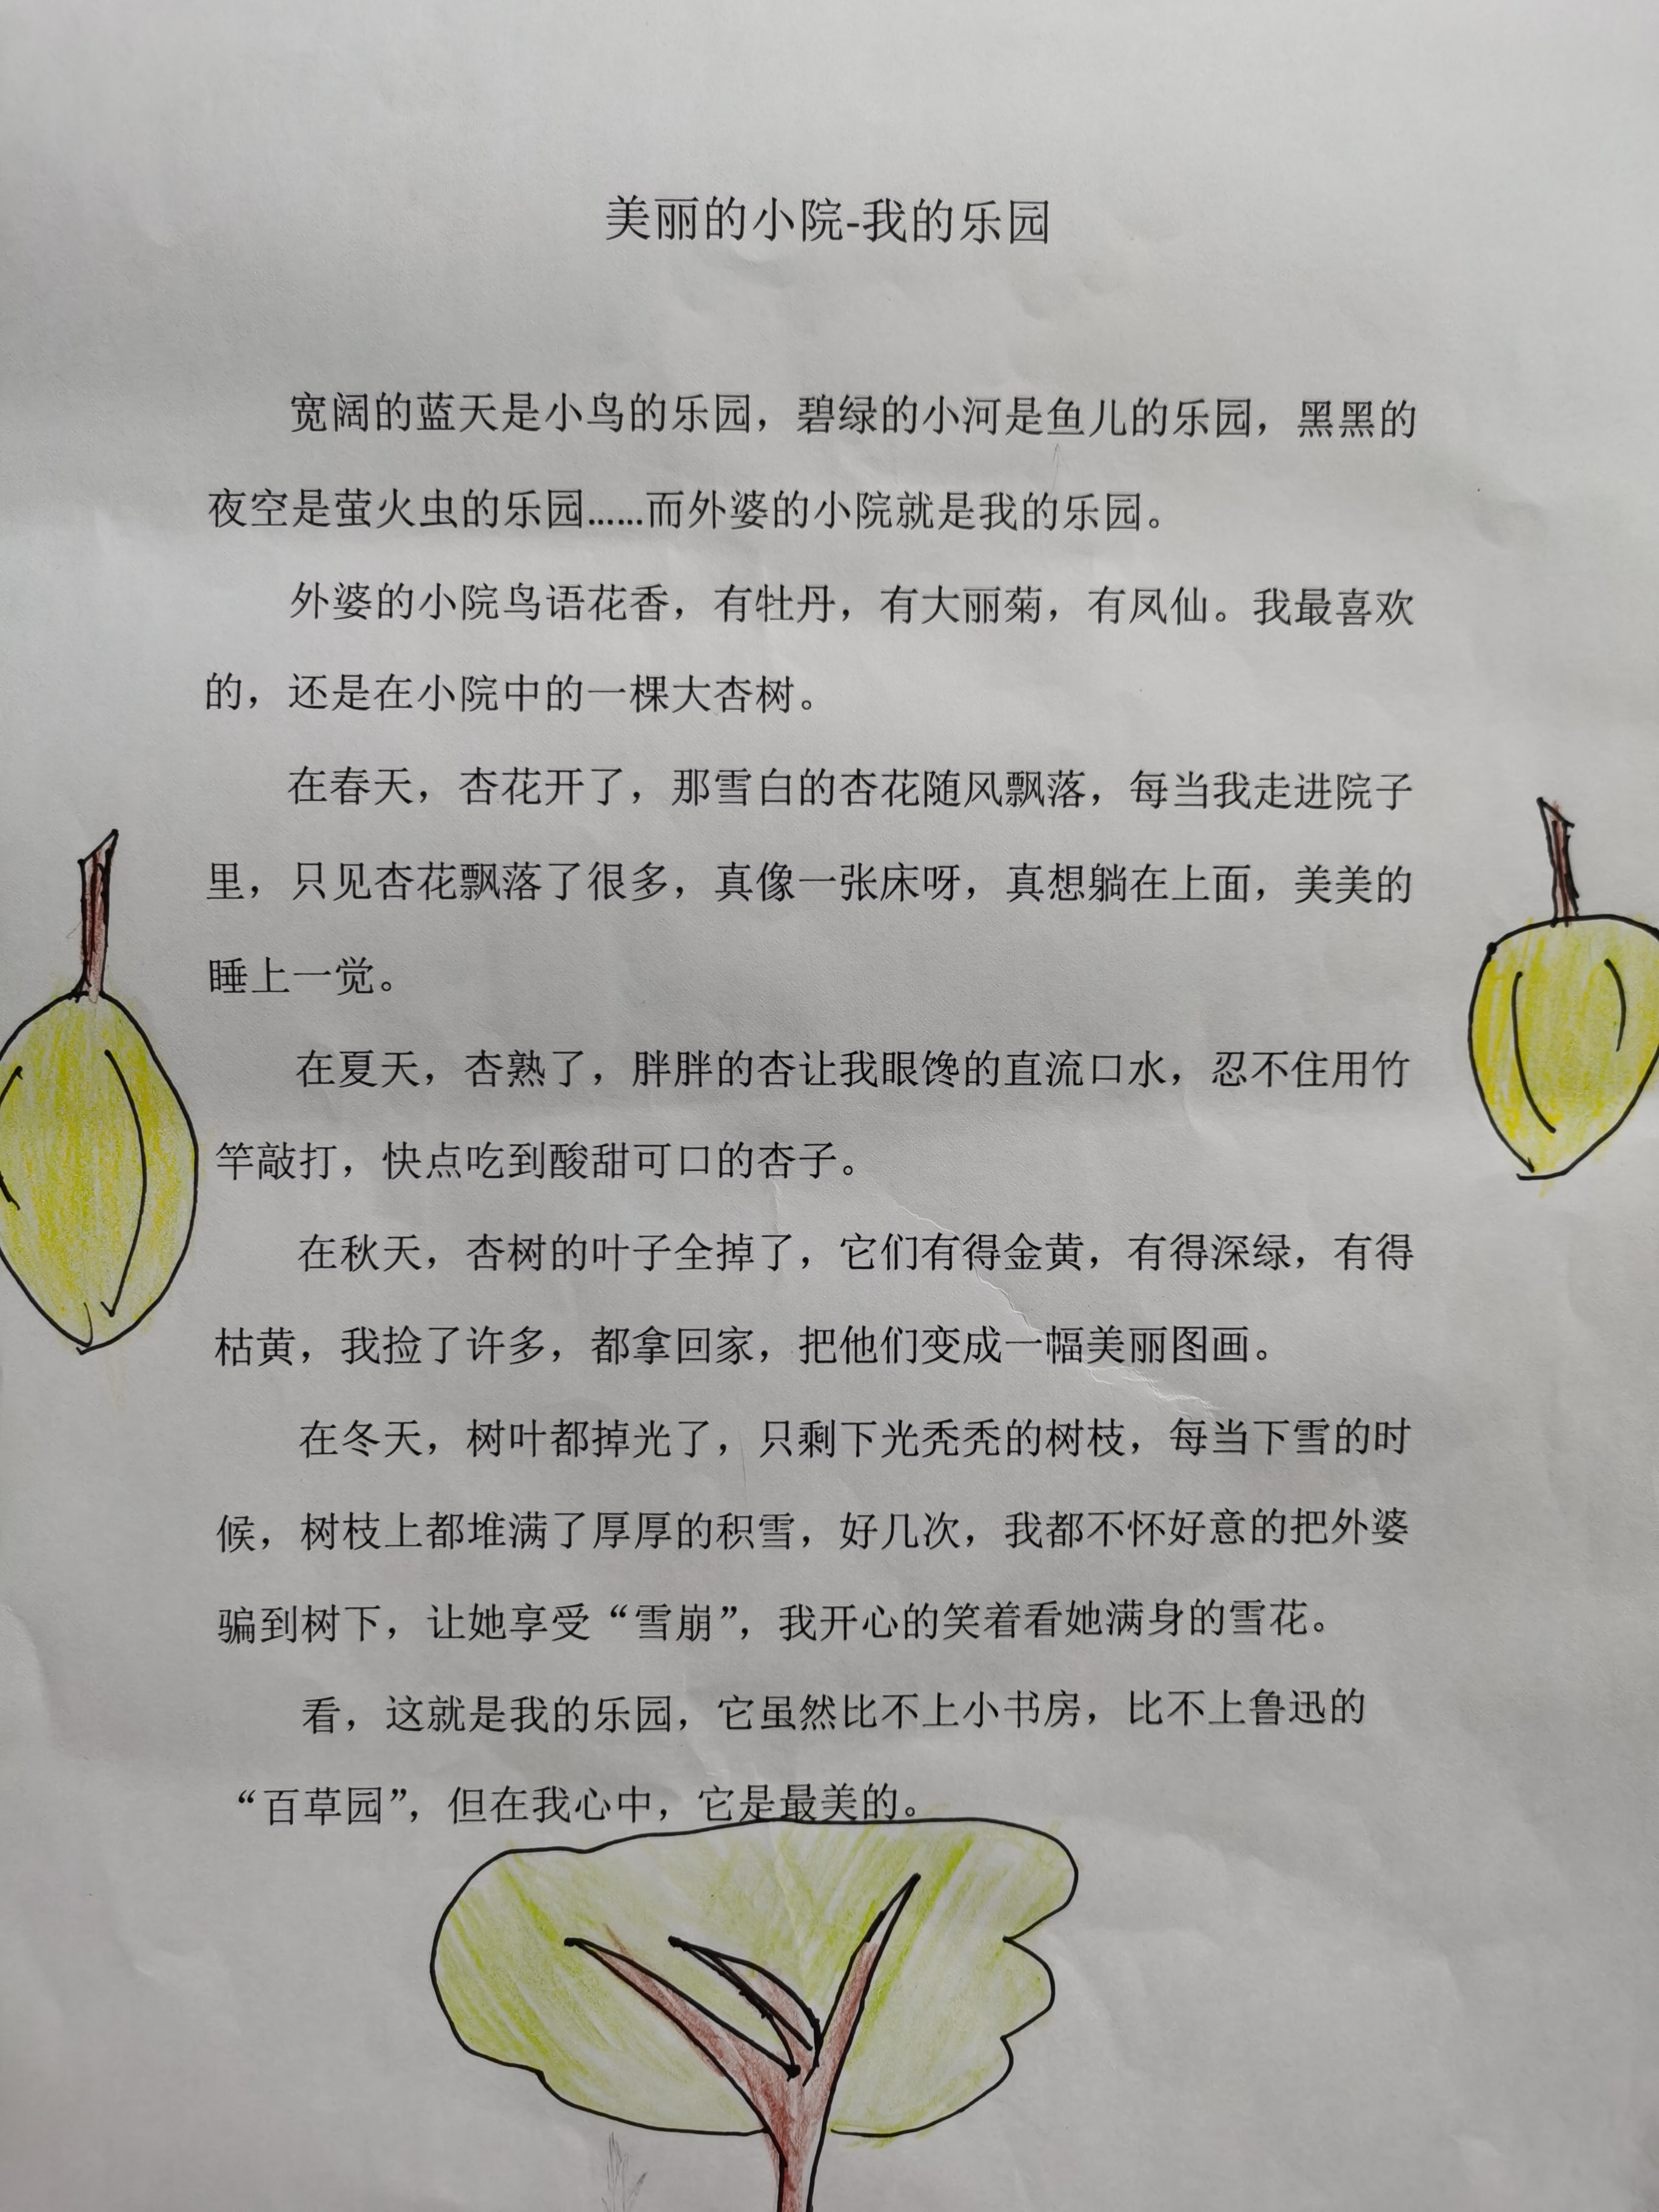 美丽的小院-我的乐园
宽阔的蓝天是小鸟的乐园，碧绿的小河是鱼儿的乐园，黑黑的
夜空是萤火虫的乐园……而外婆的小院就是我的乐园。
外婆的小院鸟语花香，有牡丹，有大丽菊，有凤仙。我最喜欢
的，还是在小院中的一棵大杏树。
在春天，杏花开了，那雪白的杏花随风飘落，每当我走进院子
里，只见杏花飘落了很多，真像一张床呀，真想躺在上面，美美的
睡上一觉。
在夏天，杏熟了，胖胖的杏让我眼馋的直流口水，忍不住用竹
竿敲打，快点吃到酸甜可口的杏子。
在秋天，杏树的叶子全掉了，它们有得金黄，有得深绿，有得
枯黄，我捡了许多，都拿回家，把他们变成一幅美丽图画。
在冬天，树叶都掉光了，只剩下光秃秃的树枝，每当下雪的时
候，树枝上都堆满了厚厚的积雪，好几次，我都不怀好意的把外婆
骗到树下，让她享受“雪崩”，我开心的笑着看她满身的雪花。
看，这就是我的乐园，它虽然比不上小书房，比不上鲁迅的
“百草园”，但在我心中，它是最美的。